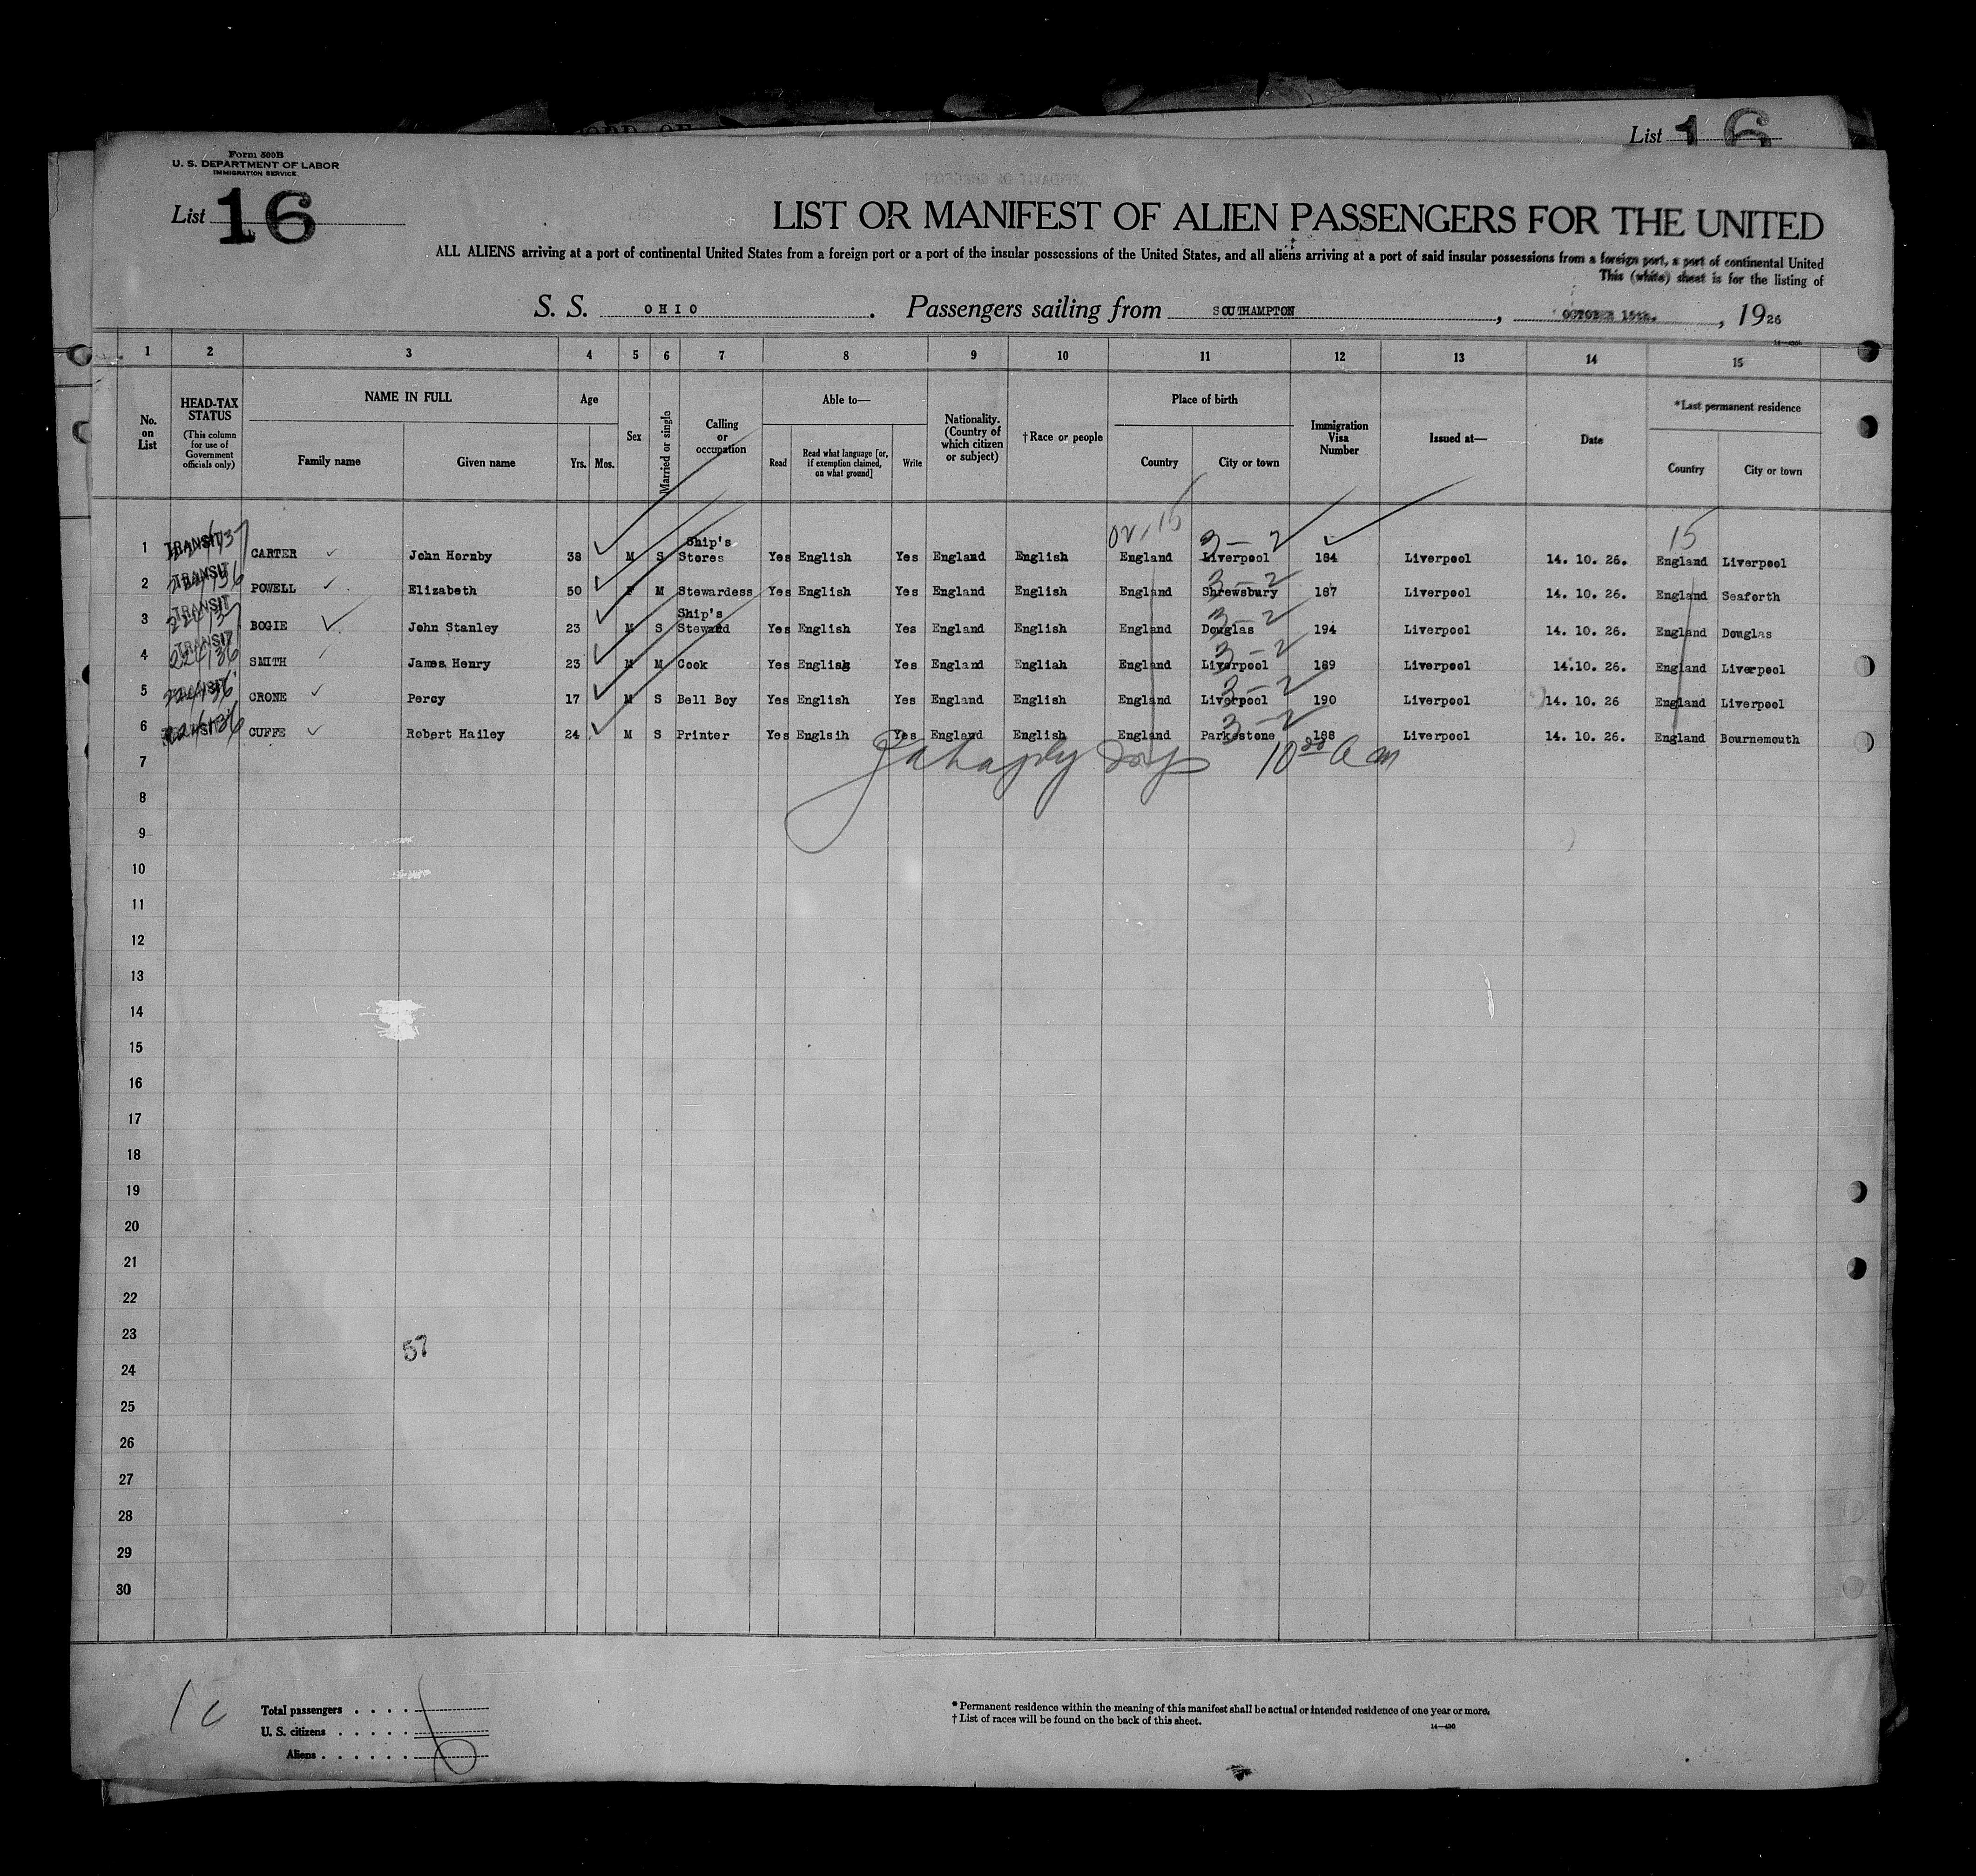 List 16
Form 500B
U. S. DEPARTMENT OF LABOR
IMMIGRATION SERVICE
List 16
LIST OR MANIFEST OF ALIEN PASSENGERS FOR THE UNITED
ALL ALIENS arriving at a port of continental United States from a foreign port or a port of the insular possessions of the United States, and all aliens arriving at a port of said insular possessions from a foreign port, a port of continental United
This (white) sheet is for the listing of
S. S. OHIO. Passengers sailing from SOUTHAMPTON, OCTOBER 15th., 1926
1 2 3 4 5 6 7 8 9 10 11 12 13 14 15
No. on List
HEAD-TAX STATUS
(This column for use of Government officials only)
NAME IN FULL
Family name
Given name
Age
Yrs. Mos.
Sex
Married or single
Calling or occupation
Able to—
Read
Read what language [or, if exemption claimed, on what ground]
Write
Nationality. (Country of which citizen or subject)
†Race or people
Place of birth
Country
City or town
Immigration Visa Number
Issued at—
Date
*Last permanent residence
Country
City or town
15
1 TRANSIT CARTER John Hornby 38 M S Ship's Stores Yes English Yes England English England Liverpool 3-2 184 Liverpool 14. 10. 26. England Liverpool
2 TRANSIT POWELL Elizabeth 50 F M Stewardess Yes English Yes England English England Shrewsbury 3-2 187 Liverpool 14. 10. 26. England Seaforth
3 TRANSIT BOGIE John Stanley 23 M S Ship's Steward Yes English Yes England English England Douglas 3-2 194 Liverpool 14. 10. 26. England Douglas
4 TRANSIT SMITH James Henry 23 M M Cook Yes English Yes England English England Liverpool 3-2 189 Liverpool 14.10. 26. England Liverpool
5 CRONE Percy 17 M S Bell Boy Yes English Yes England English England Liverpool 3-2 190 Liverpool 14. 10. 26 England Liverpool
6 CUFFE Robert Hailey 24 M S Printer Yes Englsih Yes England English England Parkestone 3-2 188 Liverpool 14. 10. 26. England Bournemouth
7
8
9
10
11
12
13
14
15
16
17
18
19
20
21
22
23
57
24
25
26
27
28
29
30
Total passengers . . . .
U. S. citizens . . . . .
Aliens . . . . . .
* Permanent residence within the meaning of this manifest shall be actual or intended residence of one year or more.
† List of races will be found on the back of this sheet.
14—430